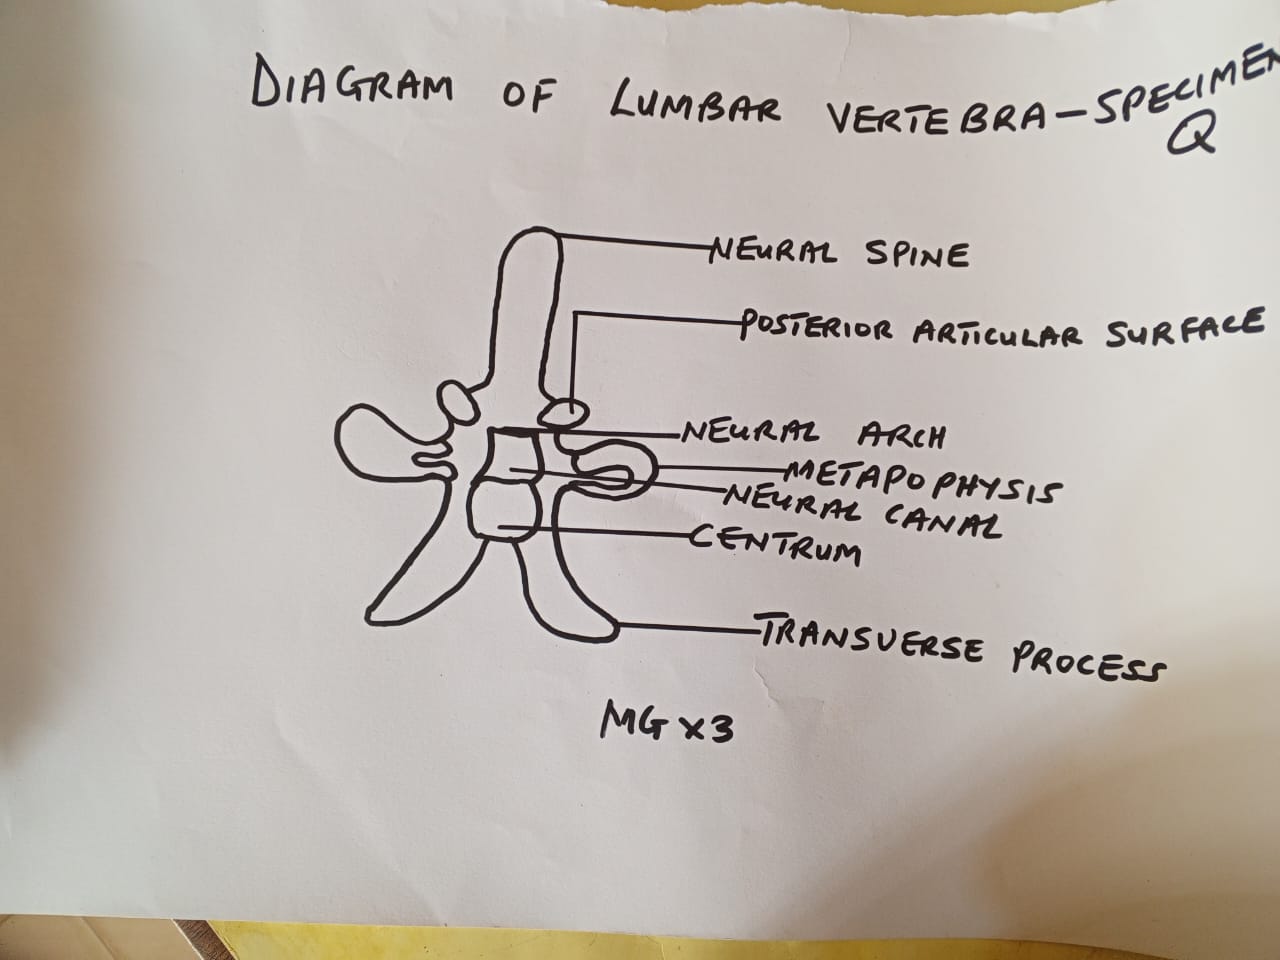 DIAGRAM OF LUMBAR VERTEBRA-SPECIMEN
Q
NEURAL SPINE
POSTERIOR ARTICULAR SURFACE
NEURAL ARCH
METAPOPHYSIS
NEURAL CANAL
CENTRUM
TRANSVERSE PROCESS
MG x3